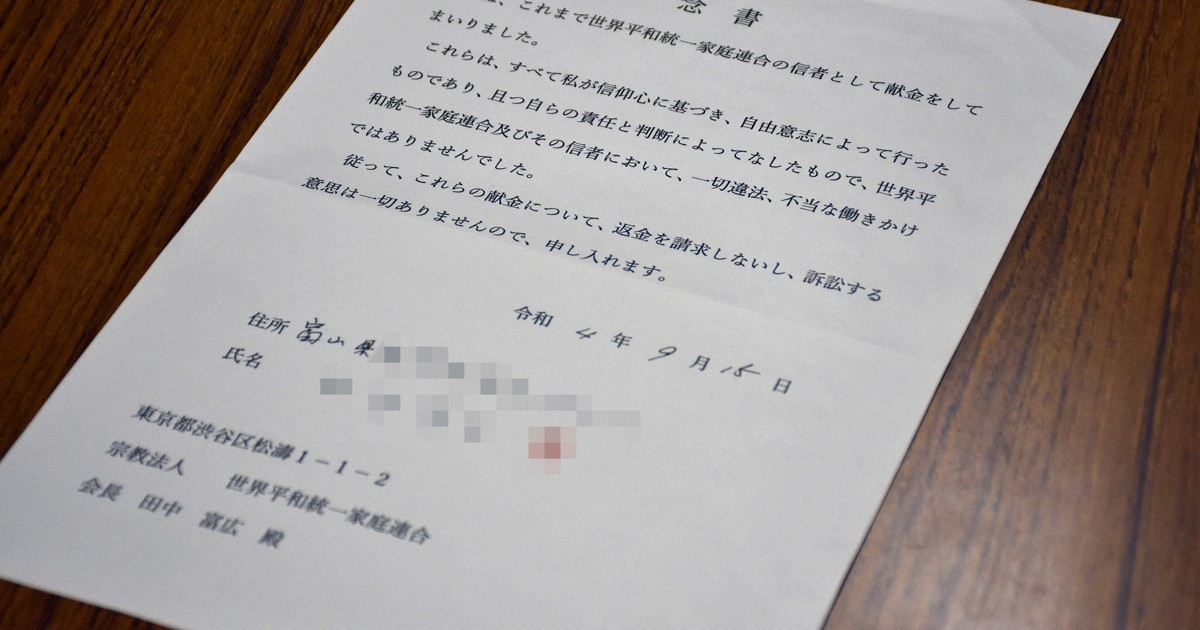 念書
は、これまで世界平和統一家庭連合の信者として献金をして
まいりました。
これらは、すべて私が信仰心に基づき、自由意志によって行った
ものであり、且つ自らの責任と判断によってなしたもので、世界平
和統一家庭連合及びその信者において、一切違法、不当な働きかけ
ではありませんでした。
従って、これらの献金について、返金を請求しないし、訴訟する
意思は一切ありませんので、申し入れます。
令和 4年 9月 15日
住所 富山県
氏名
東京都渋谷区松濤1-1-2
宗教法人 世界平和統一家庭連合
会長 田中 富広 殿